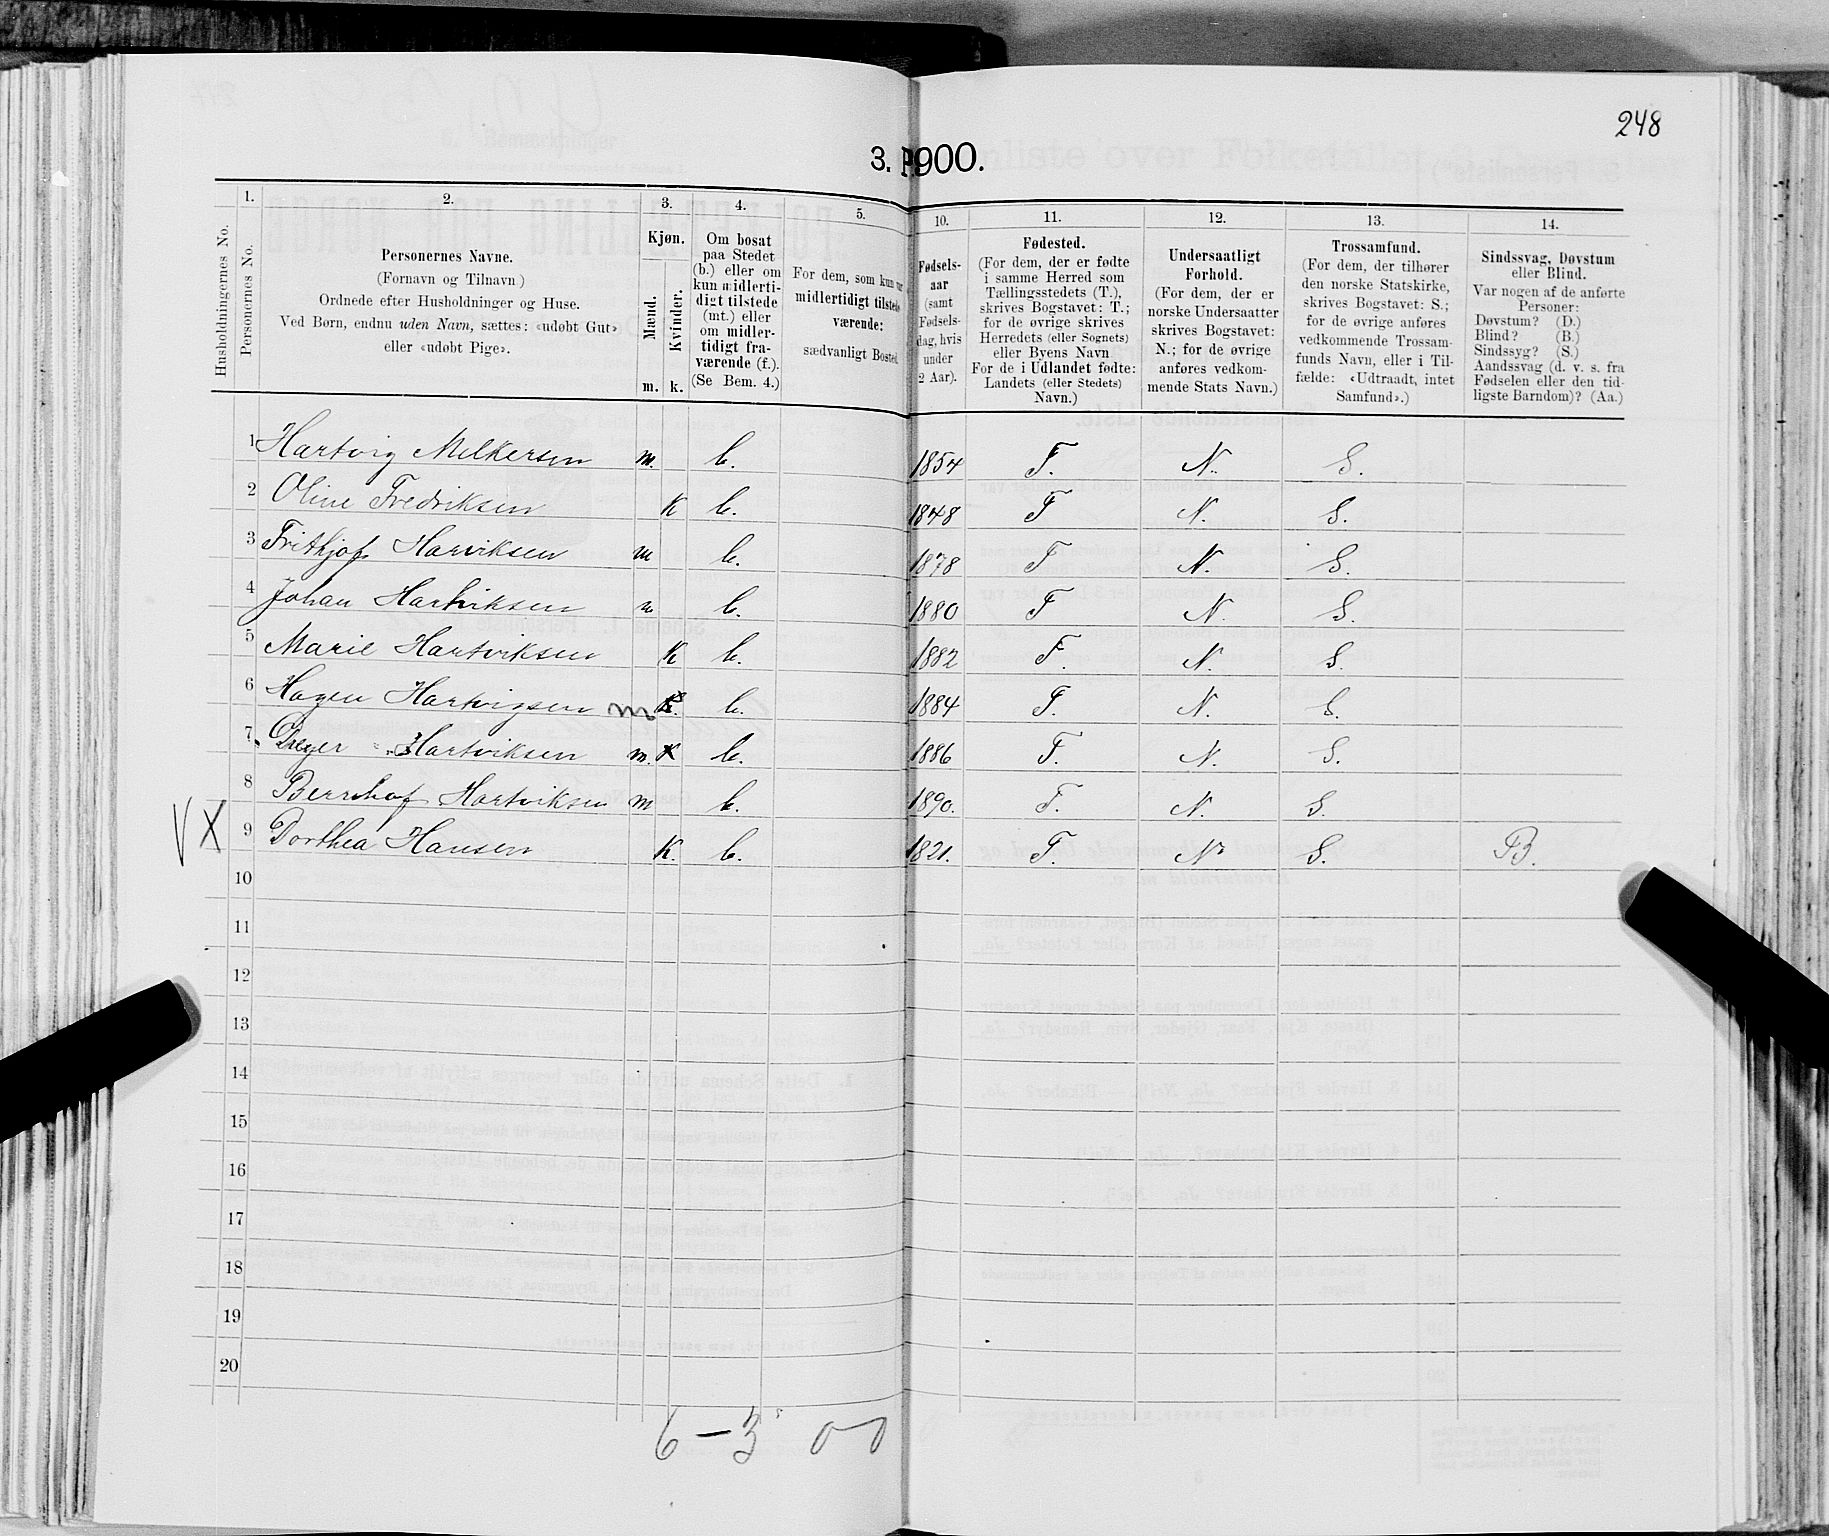 248
3. P 1900.
1. 2. 3. 4. 5. 10. 11. 12. 13. 14.
Husholdningernes No.
Personernes No.
Personernes Navne.
(Fornavn og Tilnavn)
Ordnede efter Husholdninger og Huse.
Ved Børn, endnu uden Navn, sættes: «udøbt Gut»
eller «udøbt Pige».
Kjøn.
Mænd.
Kvinder.
m. k.
Om bosat
paa Stedet
(b.) eller om
kun midlerti-
digt tilstede
(mt.) eller
om midler-
tidigt fra-
værende (f.).
(Se Bem. 4.)
For dem, som kun var
midlertidigt tilstede-
værende:
sædvanligt Bosted.
Fødsels-
aar
(samt
Fødsels-
dag, hvis
under
2 Aar).
Fødested.
(For dem, der er fødte
i samme Herred som
Tællingsstedets (T.),
skrives Bogstavet: T.;
for de øvrige skrives
Herredets (eller Sognets)
eller Byens Navn
For de i Udlandet fødte:
Landets (eller Stedets)
Navn.)
Undersaatligt
Forhold.
(For dem, der er
norske Undersaatter
skrives Bogstavet:
N.; for de øvrige
anføres vedkom-
mende Stats Navn.)
Trossamfund.
(For dem, der tilhører
den norske Statskirke,
skrives Bogstavet: S.;
for de øvrige anføres
vedkommende Trossam-
funds Navn, eller i Til-
fælde: «Udtraadt, intet
Samfund».)
Sindssvag, Døvstum
eller Blind.
Var nogen af de anførte
Personer:
Døvstum? (D.)
Blind? (B.)
Sindssyg? (S.)
Aandssvag (d. v. s. fra
Fødselen eller den tid-
ligste Barndom)? (Aa.)
1 Hartvig Melkersen m. b. 1854 T. N. S.
2 Oline Fredriksen K b. 1848 T N. S.
3 Frithjof Harviksen m b. 1878 T N. S.
4 Johan Hartviksen m b. 1880 T N. S.
5 Marie Hartviksen K b. 1882 T. N. S.
6 Hagen Hartvigsen m K. b. 1884 T. N. S.
7 Dreyer Hartviksen m. K b. 1886 T. N. S.
8 Bernhof Hartviksen m b. 1890. T. N. S.
V X 9 Dorthea Hansen K. b. 1821. T. N. S. B.
10
11
12
13
14
15
16
17
18
19
20
6 – 3 0 0